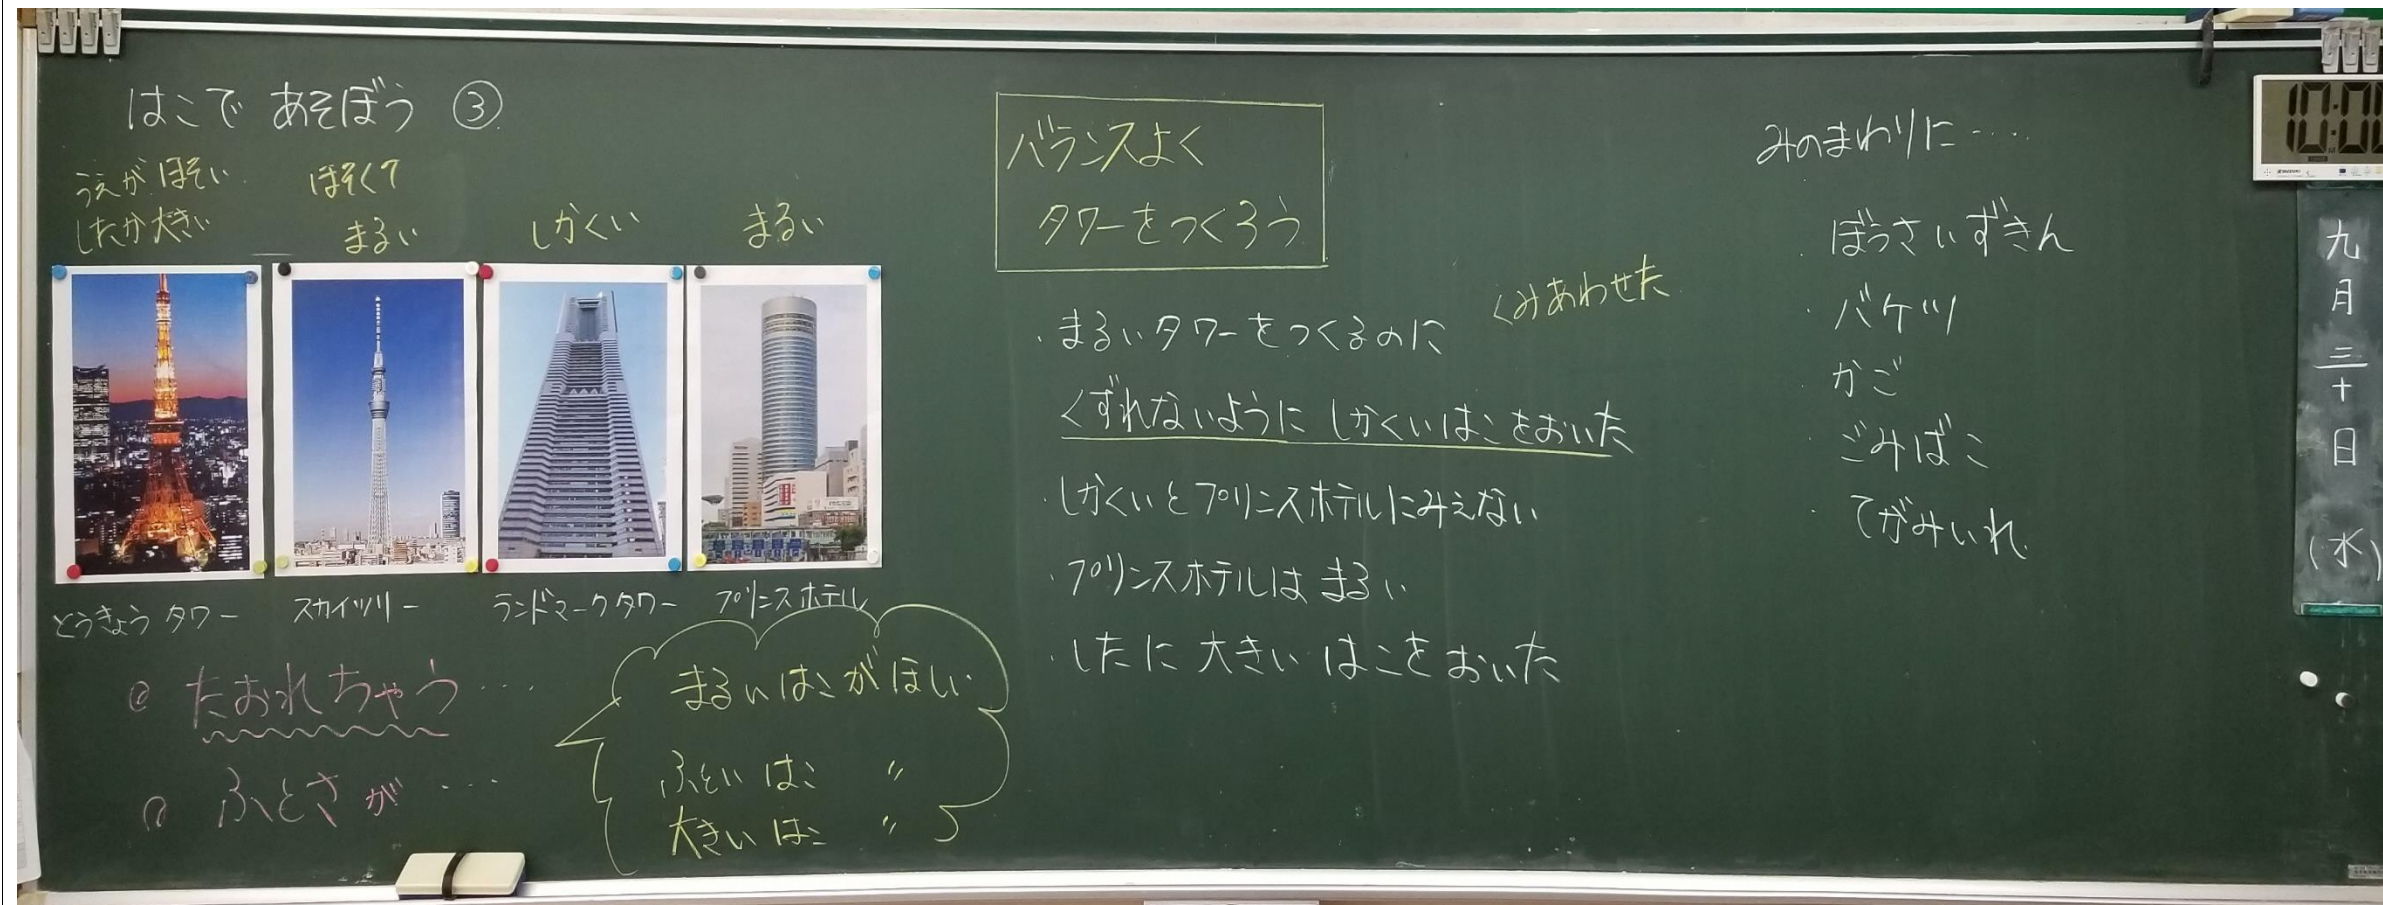 はこで あそぼう ③
うえが ほそい
したが大きい
ほそくて
まるい
しかくい
まるい
とうきょうタワー
スカイツリー
ランドマークタワー
プリンスホテル
たおれちゃう…
ふとさが…
まるいはこがほしい
ふといはこ 〃
大きいはこ 〃
バランスよく
タワーをつくろう
くみあわせた
・まるいタワーをつくるのに
くずれないように しかくいはこをおいた
・しかくいとプリンスホテルにみえない
・プリンスホテルは まるい
・したに 大きい はこを おいた
みのまわりに……
・ぼうさいずきん
・バケツ
・かご
・ごみばこ
・てがみいれ
九月三十日(水)